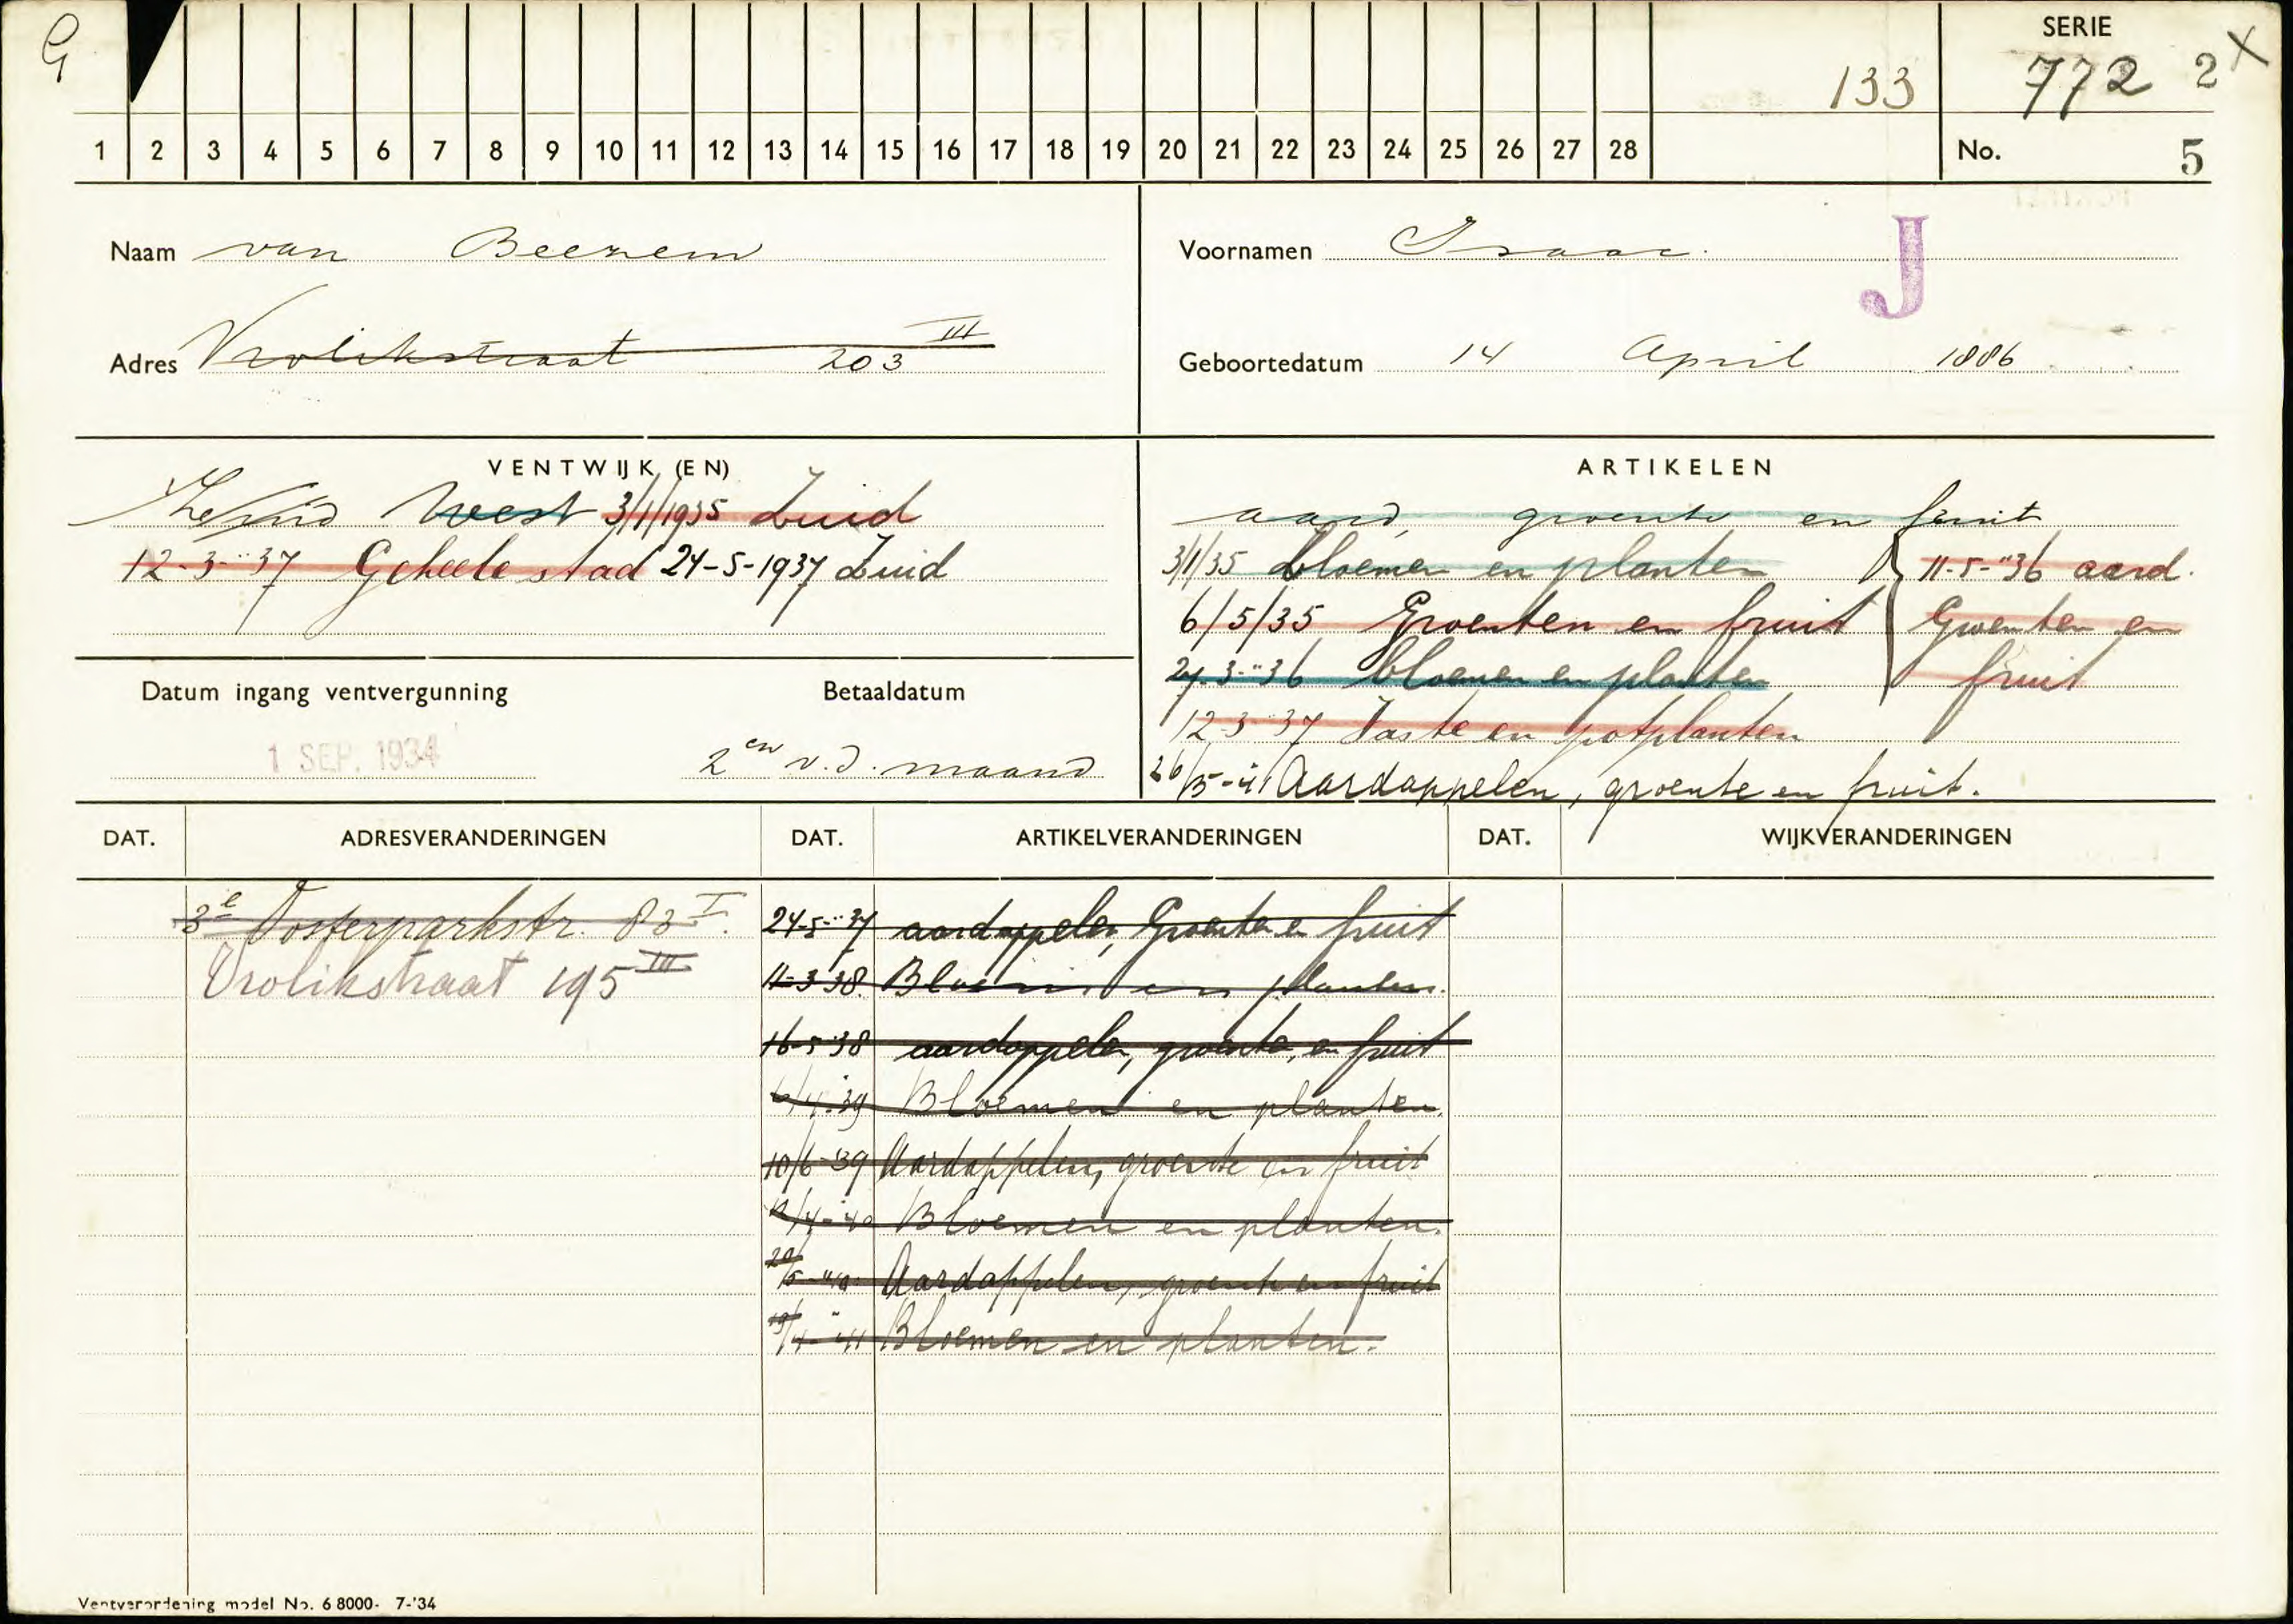 G
SERIE
133
772
2
X
1 2 3 4 5 6 7 8 9 10 11 12 13 14 15 16 17 18 19 20 21 22 23 24 25 26 27 28
No. 5
Naam van Beezem
Voornamen Isaac.
J
Adres Vrolikstraat 203 III
Geboortedatum 14 April 1886
VENTWIJK (EN)
West 3/1/1935 Zuid
12-3-"37 Geheele stad 24-5-1937 Zuid
ARTIKELEN
aard, groente en fruit
3/1/35 bloemen en planten
11-5-"36 aard.
6/5/35 Groenten en fruit
Groenten en
24-3-"36 bloemen en planten
fruit
12-3-"37 Vaste en potplanten
26/5-'41 Aardappelen, groente en fruit.
Datum ingang ventvergunning
1 SEP. 1934
Betaaldatum
2en v.d. maand
DAT. ADRESVERANDERINGEN DAT. ARTIKELVERANDERINGEN DAT. WIJKVERANDERINGEN
3e Oosterparkstr. 83 I.
24-5-"37 aardappelen, Groente en fruit
Vrolikstraat 195 III
11-3 38. Bloemen en planten.
16-5 "38 aardappelen, groente, en fruit
6/4-'39 Bloemen en planten.
10/6-39 Aardappelen, groente en fruit
12/4-'40 Bloemen en planten.
20/5-"40 Aardappelen, groente en fruit
19/4-"41 Bloemen en planten.
Ventverordening model No. 6 8000- 7-'34